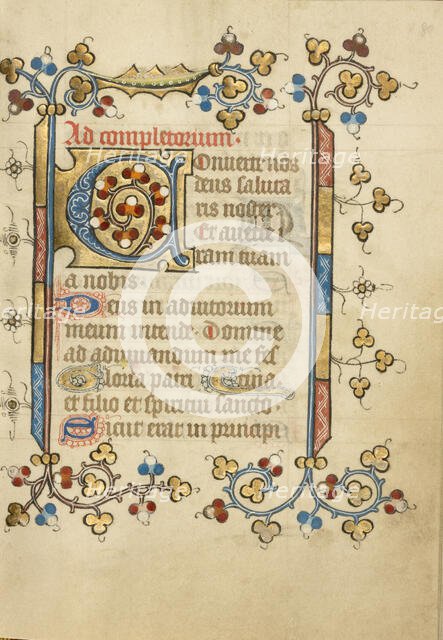 Ad completorium.
Conuerte nos
deus saluta
ris noster
Et auerte
iram tuam
a nobis.
Deus in adiutorium
meum intende. Domine
ad adiuuandum me fes
Gloria patri
et filio et spiritui sancto.
Sicut erat in principi
Heritage
Heritage
Heritage
Heritage
Heritage
Heritage